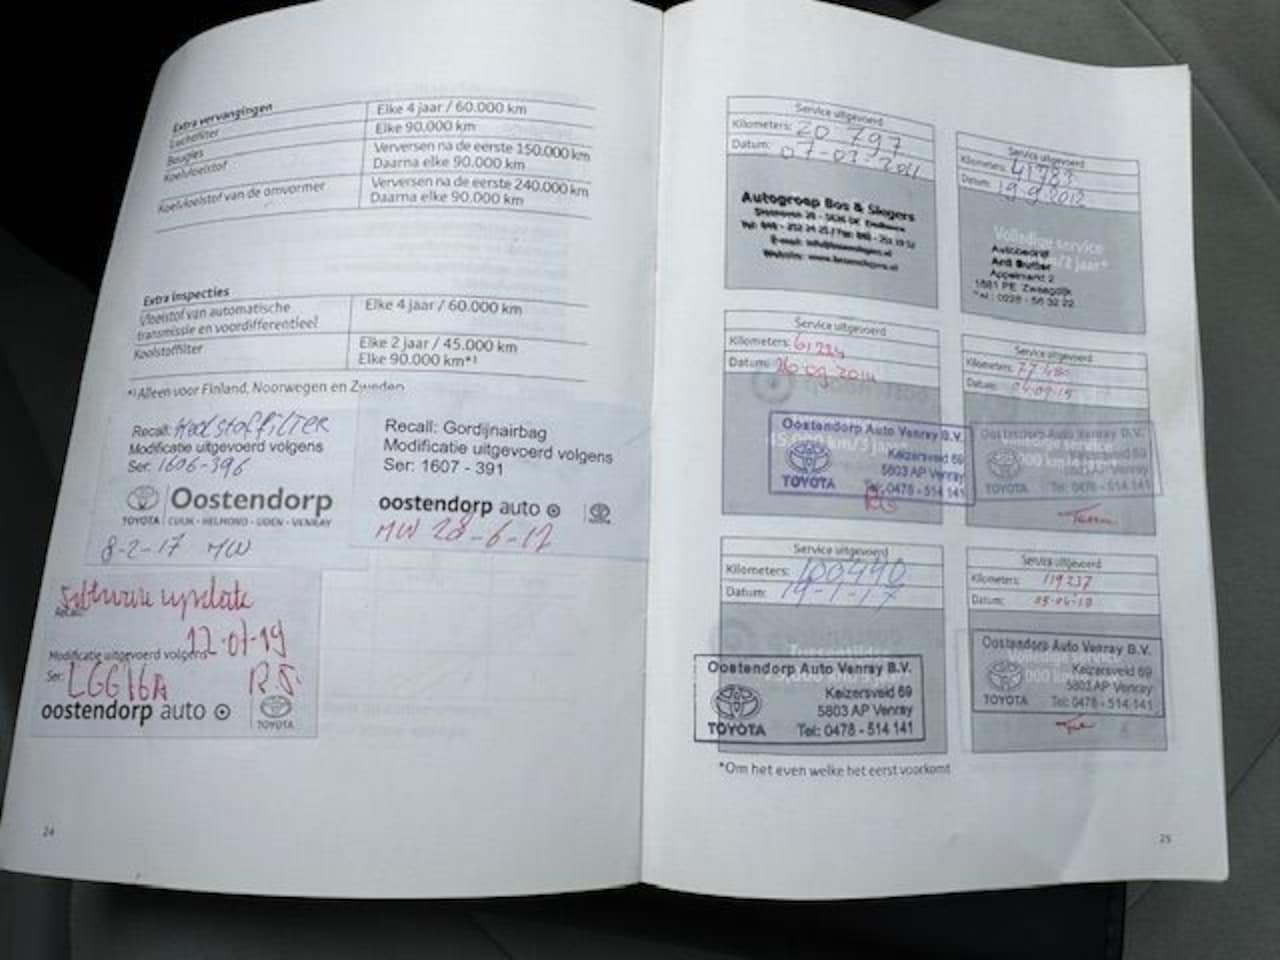 Extra vervangingen
Luchtfilter
Elke 4 jaar / 60.000 km
Bougies
Elke 90.000 km
Koelvloeistof
Verversen na de eerste 150.000 km
Daarna elke 90.000 km
Koelvloeistof van de omvormer
Verversen na de eerste 240.000 km
Daarna elke 90.000 km
Extra inspecties
Vloeistof van automatische
transmissie en voordifferentieel
Elke 4 jaar / 60.000 km
Koolstoffilter
Elke 2 jaar / 45.000 km
Elke 90.000 km*¹
*¹ Alleen voor Finland, Noorwegen en Zweden
Recall:
Modificatie uitgevoerd volgens
Ser: 1606-396
Oostendorp
TOYOTA | CUIJK - HELMOND - UDEN - VENRAY
8-2-17 MW
Recall: Gordijnairbag
Modificatie uitgevoerd volgens
Ser: 1607 - 391
oostendorp auto
MW 28-6-17
Software update
Recall:
12-01-19
Modificatie uitgevoerd volgens
Ser:
R.S.
oostendorp auto
TOYOTA
24
Service uitgevoerd
Kilometers: 20 797
Datum: 07-03-2011
Autogroep Bos & Slegers
Service uitgevoerd
Kilometers: 41783
Datum: 19-9-2012
Volledige service
/2 jaar*
Autobedrijf
Ard Butter
Appelmarkt 2
1681 PE Zwaagdijk
Tel.: 0228 - 56 32 22
Service uitgevoerd
Kilometers:
Datum: 26 09 2014
Oostendorp Auto Venray B.V.
Keizersveld 69
5803 AP Venray
TOYOTA
Tel: 0478 - 514 141
Service uitgevoerd
Kilometers:
Datum: 04-09-15
Oostendorp Auto Venray B.V.
Keizersveld 69
5803 AP Venray
TOYOTA
Tel: 0478 - 514 141
Service uitgevoerd
Kilometers: 100440
Datum: 19-1-17
Oostendorp Auto Venray B.V.
Keizersveld 69
5803 AP Venray
TOYOTA
Tel: 0478 - 514 141
Service uitgevoerd
Kilometers: 119237
Datum: 05-04-18
Oostendorp Auto Venray B.V.
Keizersveld 69
5803 AP Venray
TOYOTA
Tel: 0478 - 514 141
*Om het even welke het eerst voorkomt
25